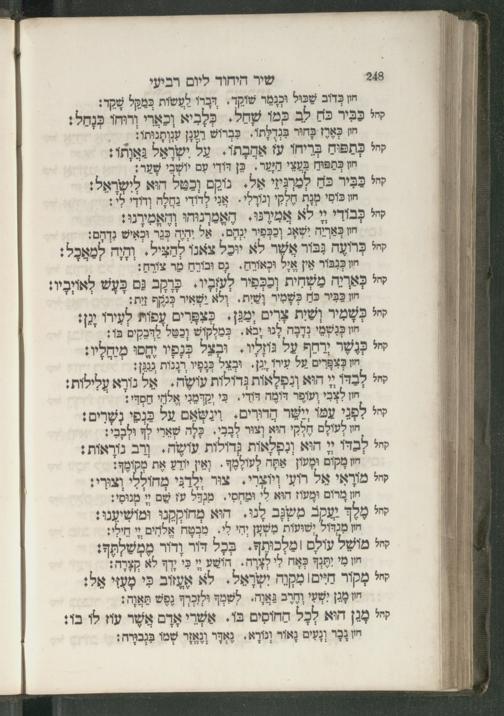 248
שיר היחוד ליום רביעי
חזן כְּדוֹב שַׁכּוּל וּכְנָמֵר שׁוֹקֵד. דְּבָרוֹ לַעֲשׂוֹת כְּמַקֵּל שָׁקֵד:
קהל כַּבִּיר כֹּחַ לֵב כְּמוֹ שָׁחַל. כְּלָבִיא וְכַאֲרִי וְרוּחוֹ כְּנָחַל:
חזן כְּאֶרֶז בָּחוּר בִּגְדֻלָּתוֹ. כִּבְרוֹשׁ רַעֲנָן עַנְוְתָנוּתוֹ:
קהל כְּתַפּוּחַ בְּרֵיחוֹ עֹז אַהֲבָתוֹ. עַל יִשְׂרָאֵל גַּאֲוָתוֹ:
חזן כְּתַפּוּחַ בַּעֲצֵי הַיַּעַר. כֵּן דּוֹדִי עִם יוֹשְׁבֵי שָׁעַר:
קהל כַּבִּיר כֹּחַ לְמַרְגִּיזֵי אֵל. נוֹקֵם וְכַטַּל הוּא לְיִשְׂרָאֵל:
חזן כּוֹסִי מְנָת חֶלְקִי וְגוֹרָלִי. אֲנִי לְדוֹדִי נַחֲלָה וְדוֹדִי לִי:
קהל כְּבוֹדִי יְיָ לֹא אֲמִירֶנּוּ. הֶאֱמַרְנוּהוּ וְהֶאֱמִירָנוּ:
חזן כְּאַרְיֵה יִשְׁאַג וְכַכְּפִיר יִנְהֹם. אַל יְהִיֶה כְּגֵר וּכְאִישׁ נִדְהָם:
קהל כְּרוֹעֶה גִּבּוֹר אֲשֶׁר לֹא יוּכַל צֹאנוֹ לְהַצִּיל. וְהָיָה לְמַאֲכָל:
חזן כְּגִבּוֹר אֵין אֱיָל וּכְאוֹרֵחַ. גַּם וּבוֹרֵחַ מַר צוֹרֵחַ:
קהל כְּאַרְיֵה מַשְׁחִית וְכַכְּפִיר לְעֹזְבָיו. כְּרָקָב גַּם כָּעָשׁ לְאוֹיְבָיו:
חזן כַּבִּיר כֹּחַ כְּשָׁמִיר וְשַׁיִת. וְלֹא יַשְׁאִיר כְּנֹקֶף זַיִת:
קהל כְּשָׁמִיר וְשַׁיִת צָרִים יְמַגֵּן. כְּצִפֳּרִים עָפוֹת לְעִירוֹ יָגֵן:
חזן כְּגִשְׁמֵי נְדָבָה לָנוּ יָבֹא. כְּמַלְקוֹשׁ וְכַטַּל לַדְּבֵקִים בּוֹ:
קהל כְּנֶשֶׁר יְרַחֵף עַל גּוֹזָלָיו. וּבְצֵל כְּנָפָיו יֶחֱסוּ מְיַחֲלָיו:
חזן כְּצִפֳּרִים עַל עִירוֹ יָגֵן. וּבְצֵל כְּנָפָיו רְנָנוֹת נְנַגֵּן:
קהל לְבַדּוֹ יְיָ הוּא וְנִפְלָאוֹת גְּדוֹלוֹת עוֹשֶׂה. אֵל נוֹרָא עֲלִילוֹת:
חזן לִצְבִי וְעוֹפֶר דּוֹמֶה דוֹדִי. כִּי יְקַדְּמֵנִי אֱלֹהֵי חַסְדִּי:
קהל לִפְנֵי עַמּוֹ יְיַשֵּׁר הֲדוּרִים. וִינַשְּׂאֵם עַל כַּנְפֵי נְשָׁרִים:
חזן לְעוֹלָם חֶלְקִי הוּא וְצוּר לְבָבִי. כָּלָה שְׁאֵרִי לְךָ וּלְבָבִי:
קהל לְבַדּוֹ יְיָ הוּא וְנִפְלָאוֹת גְּדוֹלוֹת עוֹשֶׂה. וְרַב נוֹרָאוֹת:
חזן מָקוֹם וּמָעוֹן אַתָּה לְעוֹלָמֶךָ. וְאֵין יוֹדֵעַ אֶת מְקוֹמֶךָ:
קהל מוֹרָאִי אֵל רוֹעִי וְיוֹצְרִי. צוּר יְלָדַנִי מְחוֹלְלִי וְצוּרִי:
חזן מָרוֹם וּמָעוֹז הוּא לִי וּמַחְסִי. מִגְדַּל עֹז שֵׁם יְיָ מְנוּסִי:
קהל מֶלֶךְ יַעֲקֹב מִשְׂגָּב לָנוּ. הוּא מְחוֹקְקֵנוּ וּמוֹשִׁיעֵנוּ:
חזן מִגְדּוֹל יְשׁוּעוֹת מִשְׁעָן יְהִי לִי. מִבְטָח אֱלֹהִים יְיָ חֵילִי:
קהל מוֹשֵׁל עוֹלָם מַלְכוּתֶךָ. בְּכָל דּוֹר וָדוֹר מֶמְשַׁלְתֶּךָ:
חזן מִי יִתֶּנְךָ כְּאָח לִי לְצָרָה. הוֹשַׁע יְיָ כִּי יָדְךָ לֹא קָצָרָה:
קהל מְקוֹר חַיִּים מִקְוֵה יִשְׂרָאֵל. לֹא אֶעֱזוֹב כִּי מָעֻזִּי אֵל:
חזן מָגֵן יִשְׁעִי וְחֶרֶב גַּאֲוָה. לְשִׁמְךָ וּלְזִכְרְךָ נֶפֶשׁ תַּאֲוָה:
קהל מָגֵן הוּא לְכָל הַחוֹסִים בּוֹ. אַשְׁרֵי אָדָם אֲשֶׁר עוֹז לוֹ בוֹ:
חזן נָבָר וְנָעִים נָאוֹר וְנוֹרָא. נֶאְדָּר וְנֶאֱזָר שְׁמוֹ בִּגְבוּרָה: